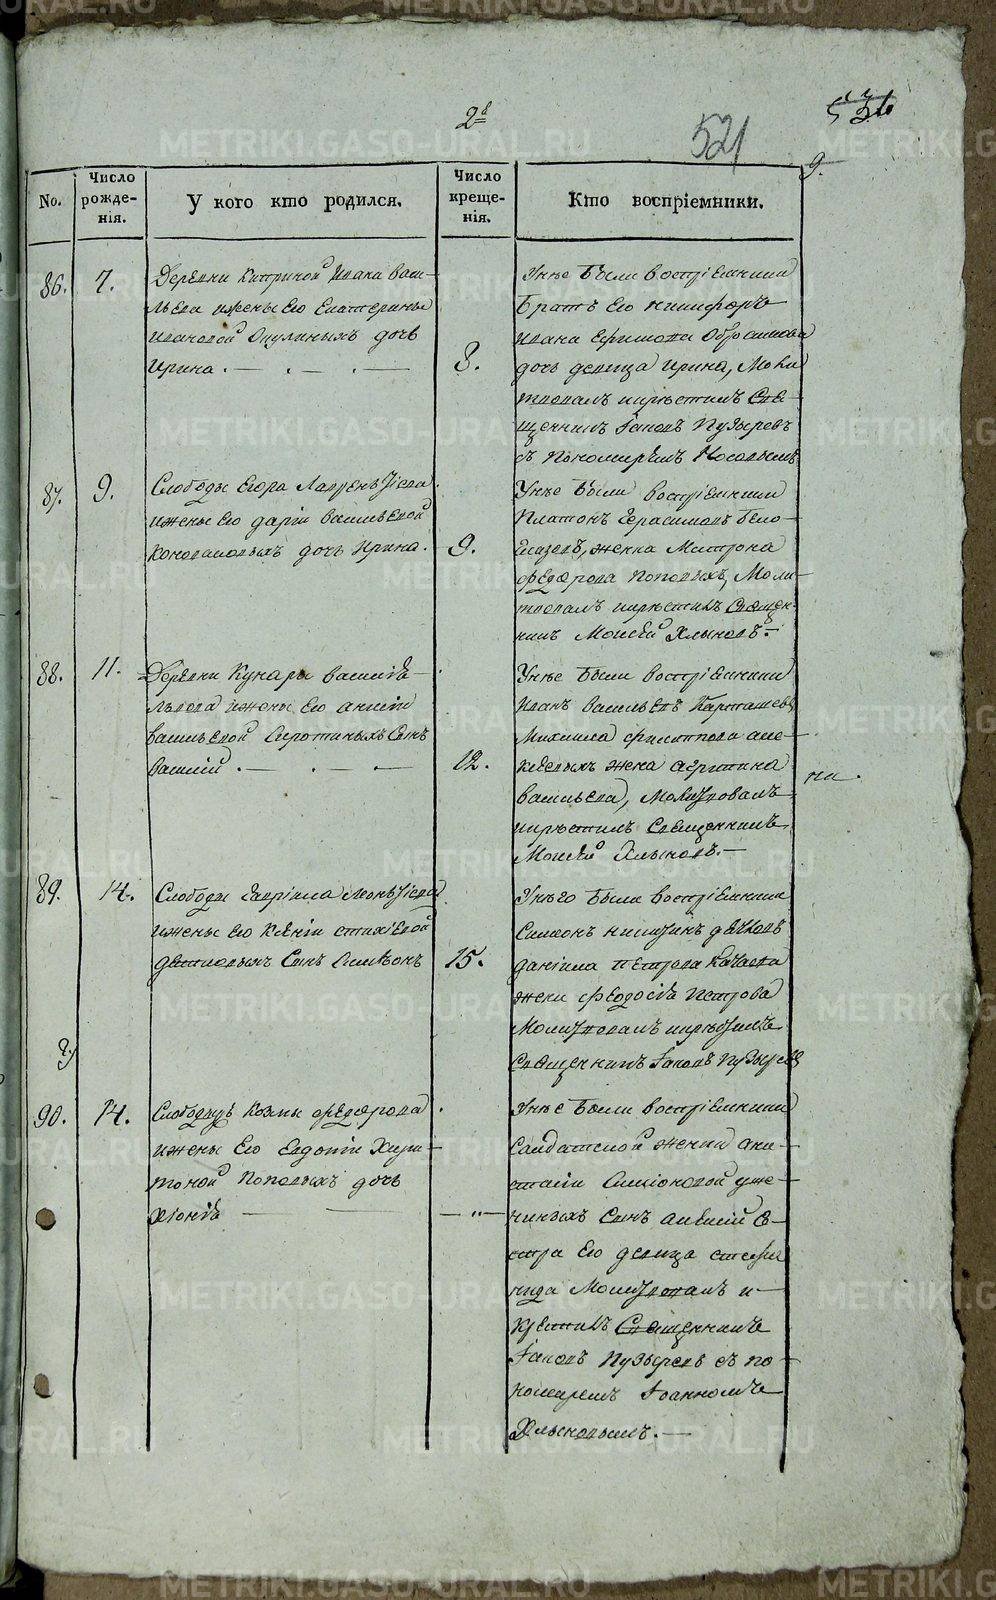 2я
521
536
9.
No.
Число рожденія.
У кого кто родился.
Число крещенія.
Кто воспріемники.
86.
7.
Деревни Ивана Васи-
льева ижены Его Екатерины
Ивановой дочь
Ирина.
8.
Унъе были воспріемники
братъ Его Никифоръ
Ивана Ефимова
дочь девица Ирина, Моли
твовалъ икрѣстилъ Свя-
щенникъ Іаковъ Пузыревъ
съ Пономаремъ
87.
9.
Слободы Егора Лаврентіева
ижены Его Дарьи Васильевой
Коноваловыхъ дочь Ирина.
9.
Унъе были воспріемники
Платонъ Герасимовъ Бело-
женка Матрона
Федорова Поповыхъ, Моли-
твовалъ икрѣстилъ Священ-
никъ Моисей Хлыновъ.
88.
11.
Деревни Кунары Василія
Львова ижены Его
Васильевой Сиротиныхъ Сынъ
Василій.
12.
Унъе были воспріемники
Иванъ Васильевъ Карташевъ
Михаила Филиппова Але-
жена Агрипина
Васильева, Молитвовалъ
икрѣстилъ Священникъ
Моисей Хлыновъ.
ни.
89.
14.
Слободы Гавріила Леонтіева
ижены Его Ксеніи
Сынъ Симѣонъ
15.
Унъго были воспріемники
Симеонъ Никитинъ Дьячковъ
Даніила Петрова
жена Федосья Петрова
Молитвовалъ икрѣстилъ
Священникъ Іаковъ Пузыревъ
90.
14.
Слободы Козмы Федорова
ижены Его Евдокіи Хари-
тоновой Поповыхъ дочь
Хіонія
"
Унъе были воспріемники
Салдатской женки Ана-
стасіи Симіоновой
Сынъ Алексій Се-
стра Его девица Степа
нида Молитвовалъ и
крѣстилъ Священникъ
Іаковъ Пузыревъ съ по-
номаремъ Іоанномъ
Хлыновымъ.
METRIKI.GASO-URAL.RU